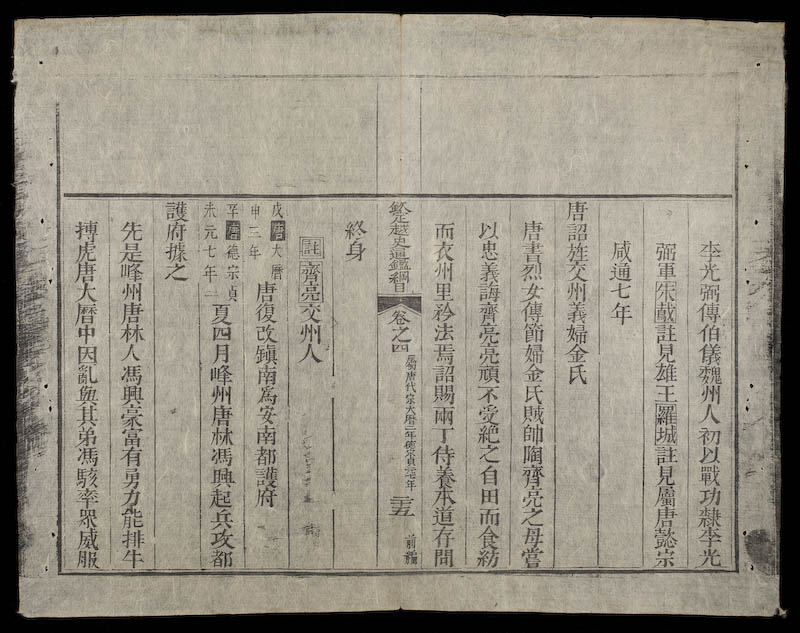 李光弼傳伯儀魏州人初以戰功隸李光
弼軍朱鳶註見雄王羅城註見屬唐懿宗
咸通七年
唐詔旌交州義婦金氏
唐書烈女傳節婦金氏賊帥陶齊亮之母嘗
以忠義誨齊亮亮頑不受絕之自田而食紡
而衣州里矜法焉詔賜兩丁侍養本道存問
欽定越史通鑑綱目 卷之四 屬唐代宗大曆三年德宗貞元七年 二十五 前編
終身
註齊亮交州人
戊唐大曆
申三年
唐復改鎮南爲安南都護府
辛唐德宗貞
未元七年
夏四月峰州唐林馮興起兵攻都
護府據之
先是峰州唐林人馮興豪富有勇力能排牛
搏虎唐大曆中因亂與其弟馮駭率眾威服